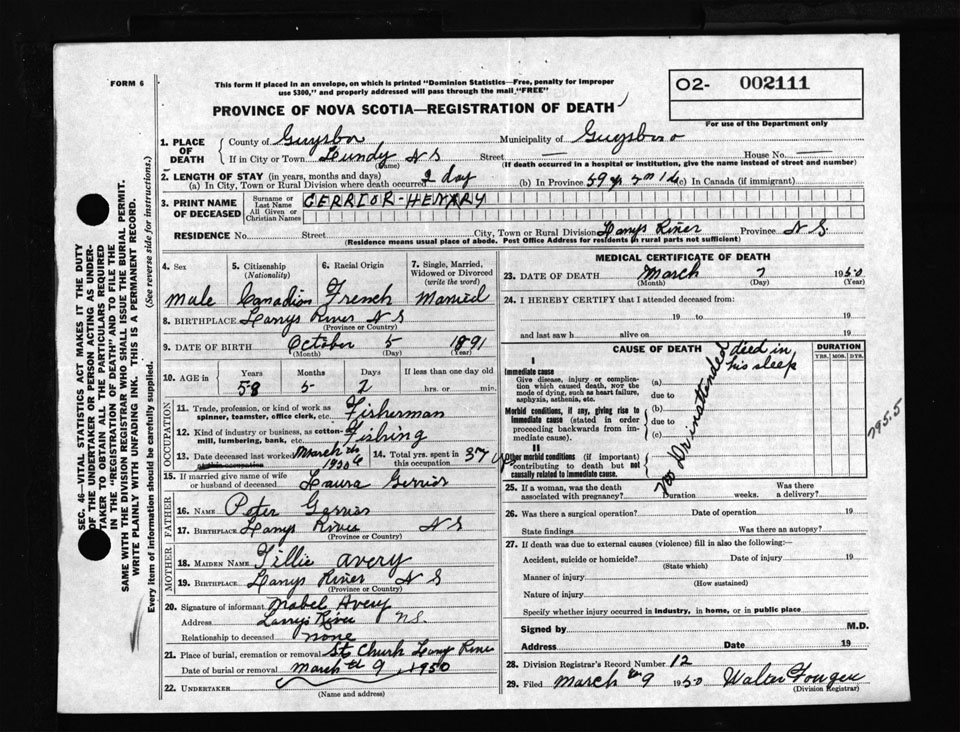 FORM 6
This form if placed in an envelope, on which is printed "Dominion Statistics—Free, penalty for improper
use $300," and properly addressed will pass through the mail "FREE"
PROVINCE OF NOVA SCOTIA—REGISTRATION OF DEATH
O2- 002111
For use of the Department only
SEC. 46—VITAL STATISTICS ACT MAKES IT THE DUTY
OF THE UNDERTAKER OR PERSON ACTING AS UNDER-
TAKER TO OBTAIN ALL THE PARTICULARS REQUIRED
IN THE "REGISTRATION OF DEATH" AND TO FILE THE
SAME WITH THE DIVISION REGISTRAR WHO SHALL ISSUE THE BURIAL PERMIT.
WRITE PLAINLY WITH UNFADING INK. THIS IS A PERMANENT RECORD.
Every item of information should be carefully supplied. (See reverse side for instructions.)
1. PLACE OF DEATH County of Guysboro Municipality of Guysboro
If in City or Town Lundy NS (Name) Street House No.
(If death occurred in a hospital or institution, give the name instead of street and number)
2. LENGTH OF STAY (in years, months and days)
(a) In City, Town or Rural Division where death occurred 2 day (b) In Province 59 (c) In Canada (if immigrant)
3. PRINT NAME OF DECEASED Surname or Last Name All Given or Christian Names GERRIOR-HENRY
RESIDENCE No. Street City, Town or Rural Division Larrys River Province N S
(Residence means usual place of abode. Post Office Address for residents in rural parts not sufficient)
4. Sex 5. Citizenship (Nationality) 6. Racial Origin 7. Single, Married, Widowed or Divorced (write the word)
Male Canadian French Married
8. BIRTHPLACE Larrys River N S
(Province or Country)
9. DATE OF BIRTH October 5 1891
(Month) (Day) (Year)
10. AGE in Years Months Days If less than one day old
58 5 2 hrs. or min.
OCCUPATION
11. Trade, profession, or kind of work as spinner, teamster, office clerk, etc. Fisherman
12. Kind of industry or business, as cotton-mill, lumbering, bank, etc. Fishing
13. Date deceased last worked at this occupation March 1950 14. Total yrs. spent in this occupation 37 yrs
15. If married give name of wife or husband of deceased Laura Gerrior
FATHER
16. NAME Peter Gerrior
17. BIRTHPLACE Larrys River N S
(Province or Country)
MOTHER
18. MAIDEN NAME Tillie Avery
19. BIRTHPLACE Larrys River N S
(Province or Country)
20. Signature of informant Mabel Avery
Address Larrys River N.S.
Relationship to deceased none
21. Place of burial, cremation or removal Church Larrys River
Date of burial or removal March 9, 1950
22. UNDERTAKER
(Name and address)
MEDICAL CERTIFICATE OF DEATH
23. DATE OF DEATH March 7 1950
(Month) (Day) (Year)
24. I HEREBY CERTIFY that I attended deceased from:
19 to 19
and last saw h alive on 19
CAUSE OF DEATH DURATION
YRS. MOS. DYS.
I
Immediate cause
Give disease, injury or complication which caused death, NOT the mode of dying, such as heart failure, asphyxia, asthenia, etc.
(a) died in his sleep
due to
Morbid conditions, if any, giving rise to immediate cause (stated in order proceeding backwards from immediate cause).
(b)
due to
(c)
II
Other morbid conditions (if important) contributing to death but not causally related to immediate cause.
No Dr in attended
795.5
25. If a woman, was the death associated with pregnancy? Duration weeks. Was there a delivery?
26. Was there a surgical operation? Date of operation 19
State findings Was there an autopsy?
27. If death was due to external causes (violence) fill in also the following:—
Accident, suicide or homicide? Date of injury 19
(State which)
Manner of injury
(How sustained)
Nature of injury
Specify whether injury occurred in industry, in home, or in public place
Signed by M.D.
Address Date 19
28. Division Registrar's Record Number 12
29. Filed March 9 1950 Walter Fougere
(Division Registrar)